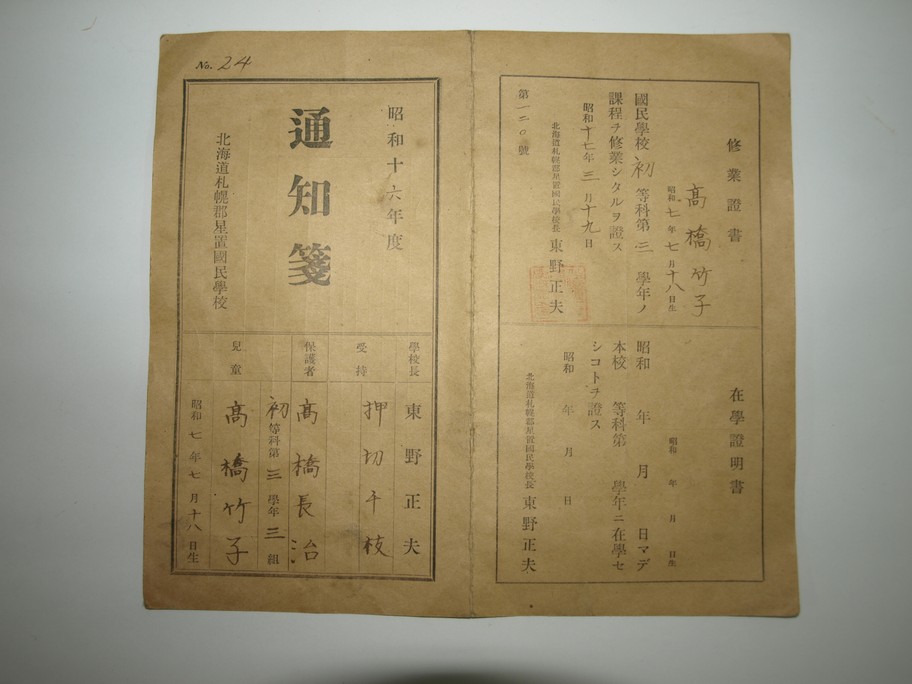 No. 24
昭和十六年度
通知箋
北海道札幌郡星置國民學校
學校長 東野正夫
受持 押切千枝
保護者 高橋長治
初等科第三學年三組
兒童 高橋竹子
昭和七年七月十八日生
修業證書
高橋竹子
昭和七年七月十八日生
國民學校初等科第三學年ノ
課程ヲ修業シタルヲ證ス
昭和十七年三月十九日
北海道札幌郡星置國民學校長 東野正夫
第一二〇號
在學證明書
昭和 年 月 日生
昭和 年 月 日マデ
本校 等科第 學年ニ在學セ
シコトヲ證ス
昭和 年 月 日
北海道札幌郡星置國民學校長 東野正夫